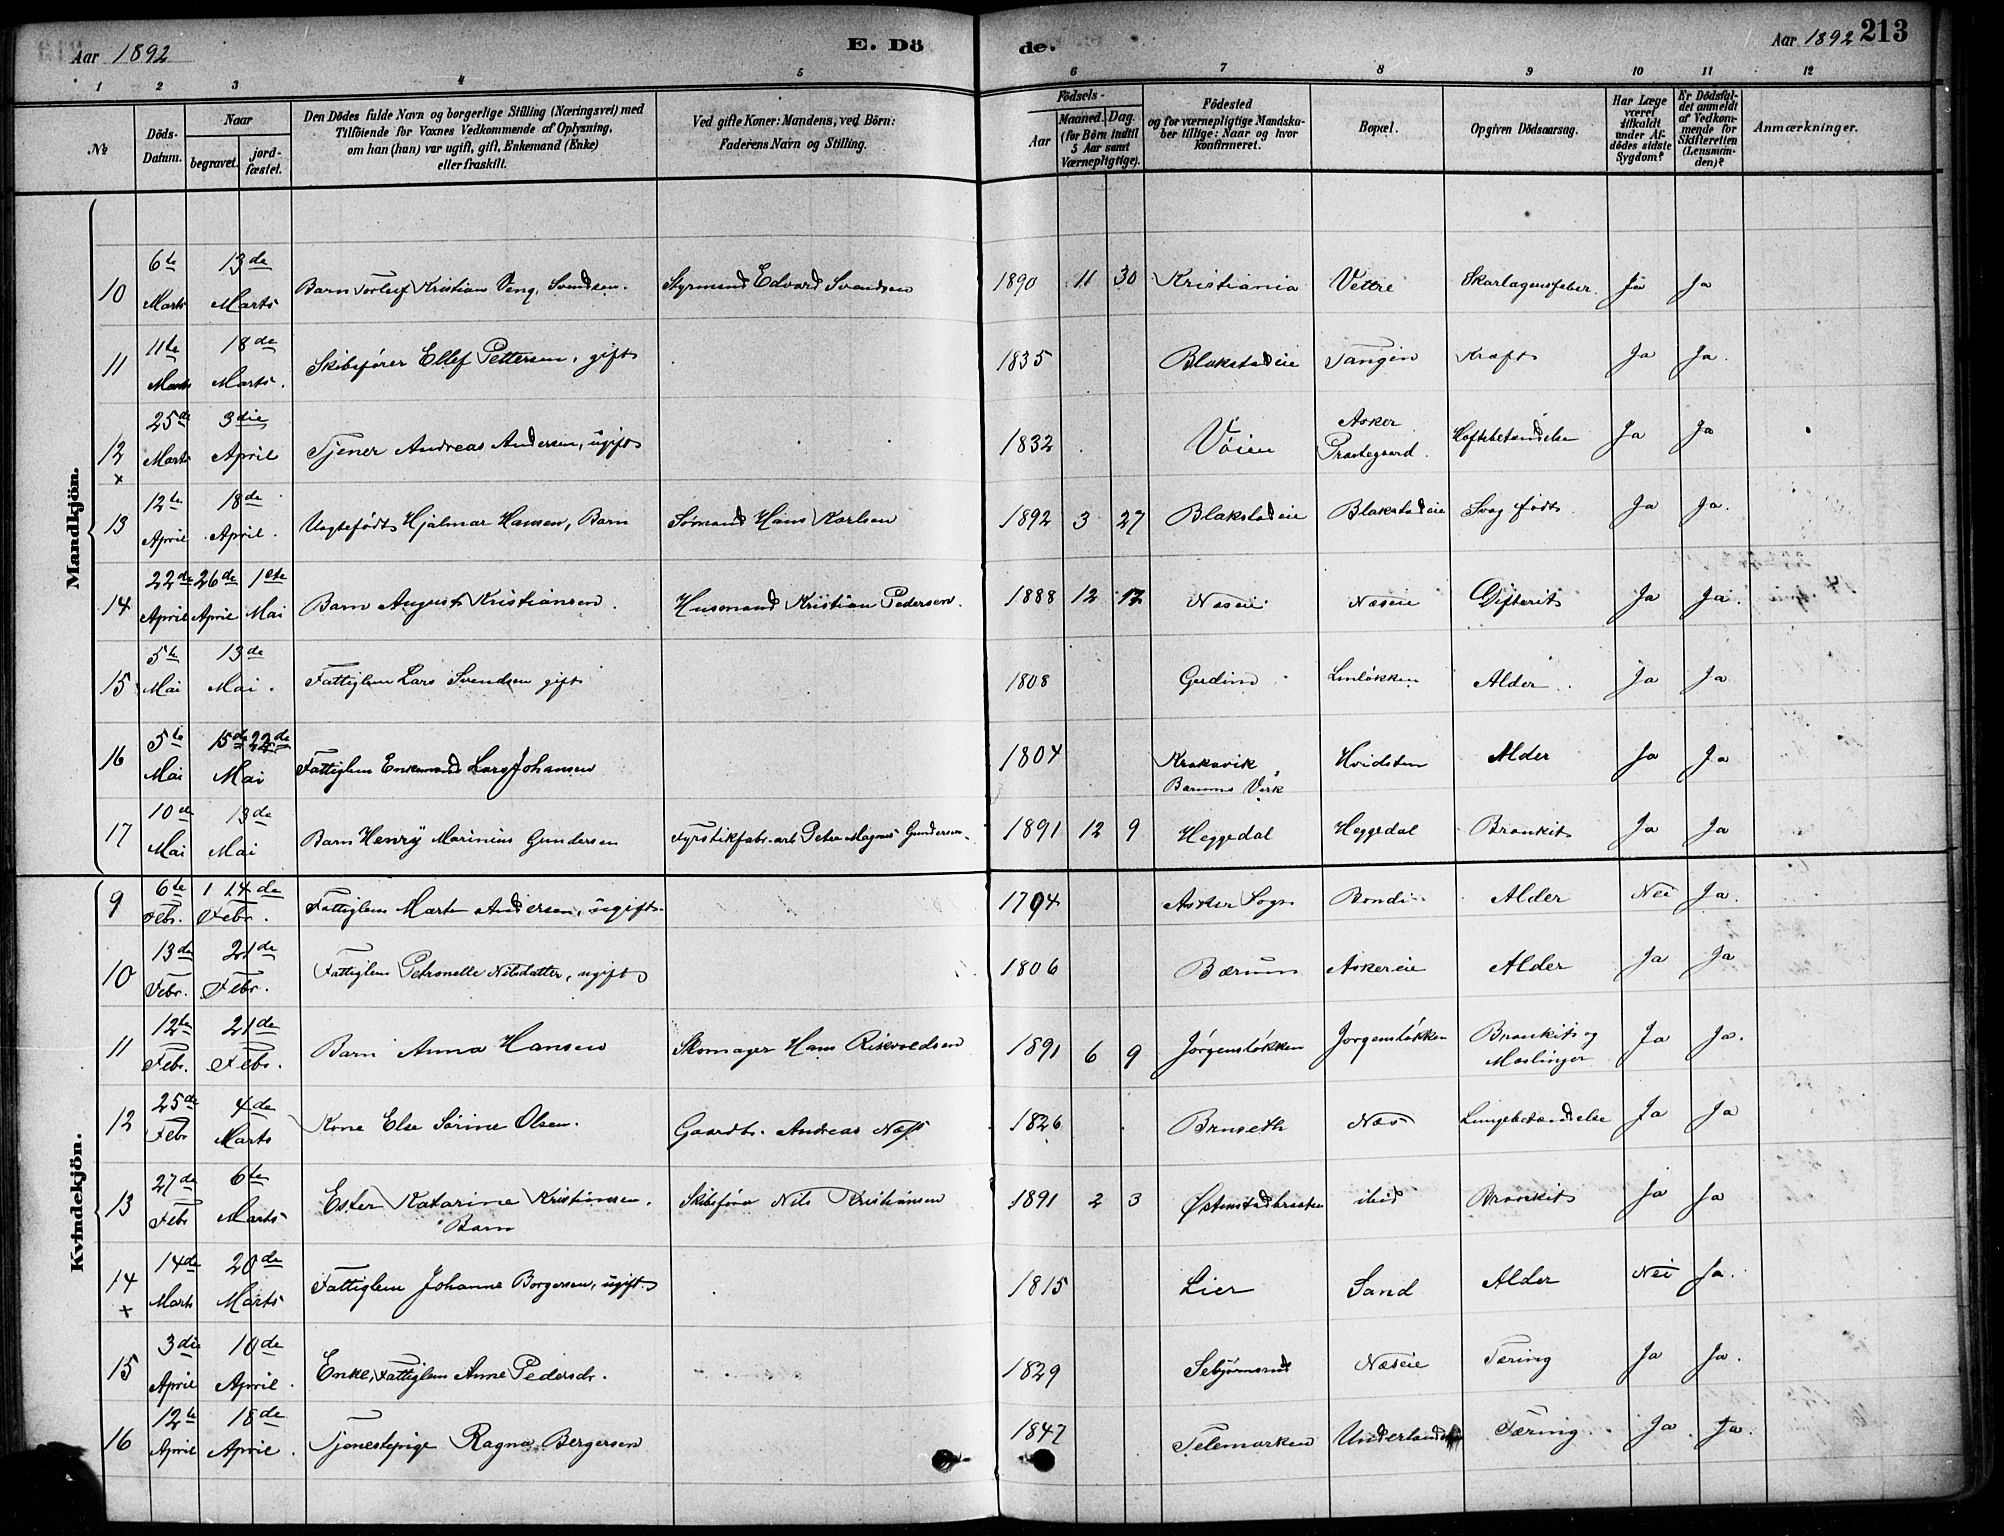 Aar 1892 E. Dö de. Aar 1892 213
1 2 3 4 5 6 7 8 9 10 11 12
No Döds-Datum. Naar begravet. jord-fæstet. Den Dödes fulde Navn og borgerlige Stilling (Næringsvei) med Tilföiende for Voxnes Vedkommende af Oplysning, om han (hun) var ugift, gift, Enkemand (Enke) eller fraskilt. Ved gifte Koner: Mandens, ved Börn: Faderens Navn og Stilling. Födsels- Aar Maaned. Dag. (for Börn indtil 5 Aar samt Værnepligtige). Födested og for værnepligtige Mandskaber tillige: Naar og hvor Konfirmeret. Bopæl. Opgiven Dödsaarsag. Har Læge været tilkaldt under Afdödes sidste Sygdom? Er Dödsfaldet anmeldt af Vedkommende for Skifteretten (Lensmanden)? Anmærkninger.
Mandkjön.
10 6te Marts 13de Marts Barn Torluf Kristian Veng. Svendsen. Styrmand Edvard Svendsen 1890 11 30 Kristiania Vettre Skarlagensfeber. Ja Ja
11 11te Marts 18de Marts. Skibsfører Ellef Pettersen, gift 1835 Blakstadeie Tangen Kræft Ja Ja.
12 x 25de Marts 3die April Tjener Andreas Andersen, ugift 1832 Vøien Asker Præstegaard. Hoftebetændelse Ja Ja
13 12te April 18de April. Uægtefødt Hjalmar Hansen, Barn Sømand Hans Karlsen 1892 3 27 Blakstadeie Blakstadeie Svag født Ja Ja.
14 22de April 26de April 1ste Mai Barn August Kristiansen. Husmand Kristian Pedersen. 1888 12 17 Næseie Næseie Difterit Ja Ja.
15 5te Mai 13de Mai. Fattiglem Lars Svendsen gift 1808 Gudim Linløkken Alder Ja Ja
16 5te Mai 15de 22de Mai Fattiglem Enkemand Lars Johansen 1804 Krokavik Bærums Værk Hvidsten Alder Ja Ja
17 10de Mai 13de Mai Barn Henry Marinius Gundersen Fyrstikfabr.arb Peter Magnus Gundersen. 1891 12 9 Heggedal Heggedal Bronkit Ja Ja
Kvindekjön.
9 6te Febr. 14de Febr. Fattiglem Marte Andersen, ugift 1794 Asker Sogn Bondi Alder Nei Ja.
10 13de Febr. 21de Febr. Fattiglem Petronelle Nilsdatter, ugift 1806 Bærum Askereie Alder Ja Ja
11 12te Febr. 21de Febr. Barn Anna Hansen Skomager Hans Rikvoldsen 1891 6 9 Jørgensløkken Jørgensløkken Bronkit og Mæslinger Ja Ja.
12 25de Febr 4de Marts Kone Else Sørine Olsen. Gaardbr. Andreas Næss 1826 Bruseth Næs Lungebetændelse Ja Ja
13 27de Febr 6te Marts Ester Katarine Kristiansen. Barn Skibsfører Nils Kristiansen 1891 2 3 Østenstadbraaten ibid Bronkit Ja Ja
14 + 14de Marts 20de Marts Fattiglem Johanne Borgersen, ugift 1815 Lier Sand Alder Nei Ja.
15 3die April 10de April. Enke, Fattiglem Anne Pedersdr. 1829 Næseie Tæring Ja Ja.
16 12te April 18de April. Tjenestepige Ragna Bergersen 1847 Telemarken Underland Tæring. Ja Ja.